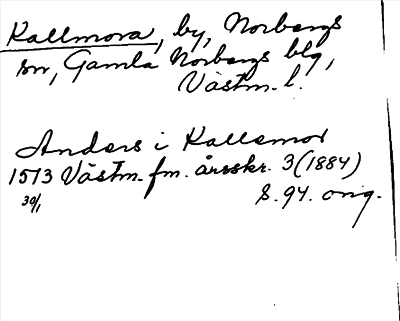 Kallmora, by, Norbergs
sn, Gamla Norbergs blg,
Västm. l.
Anders i Kallamor
1513 Västm. fm. årsskr. 3 (1884)
30/1 S. 94. orig.